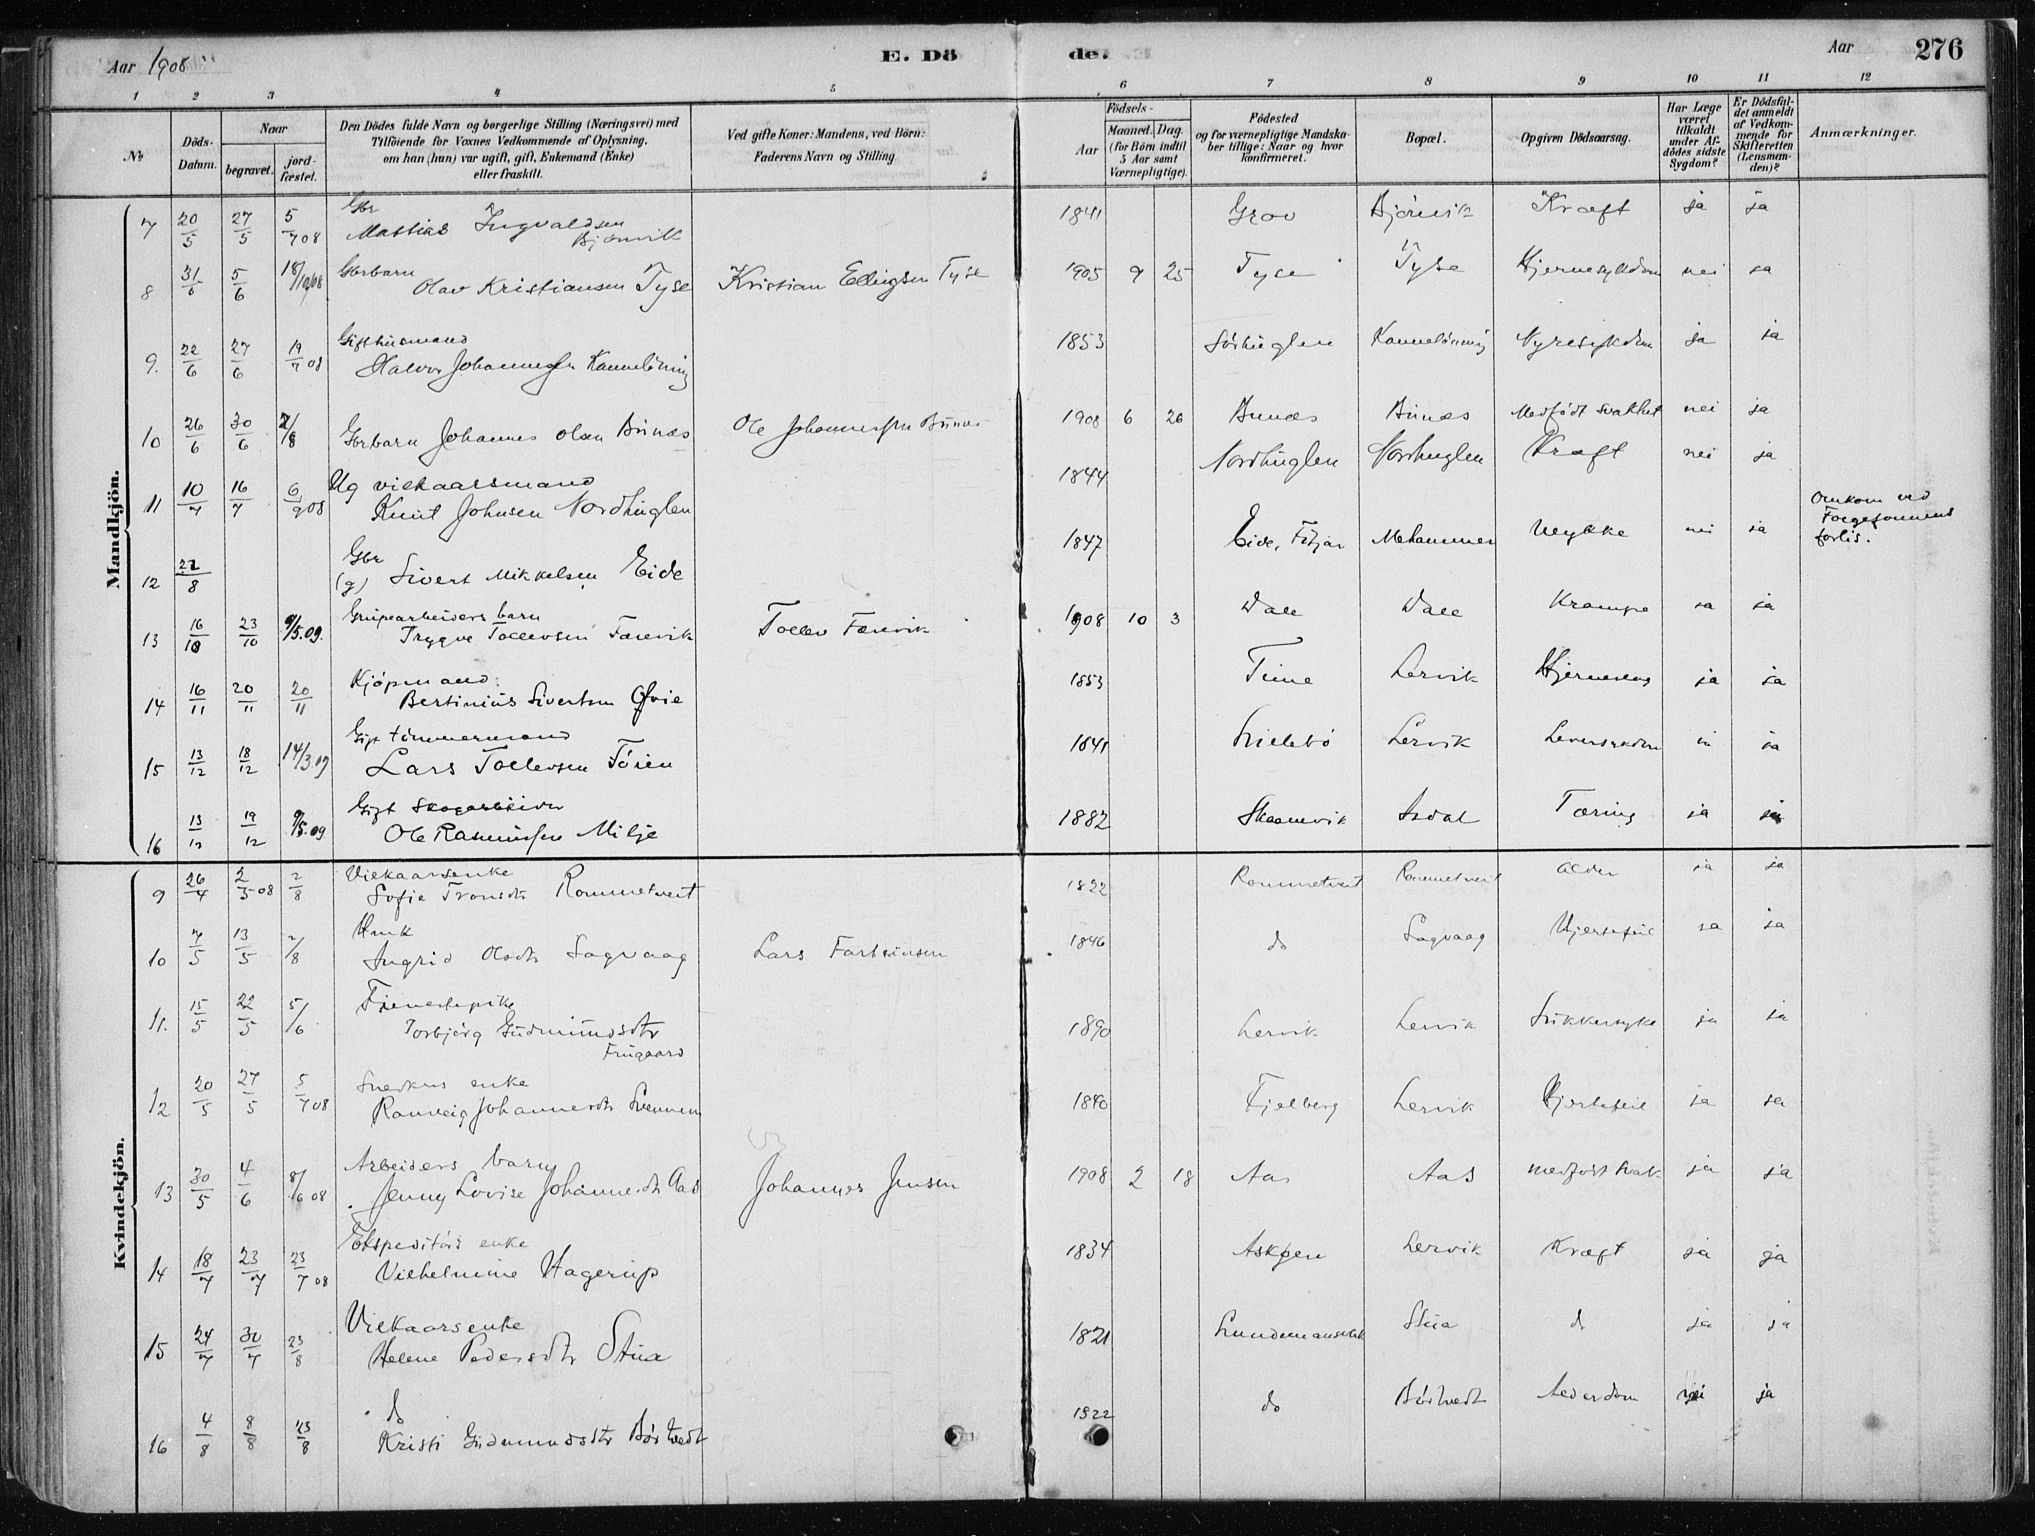 Aar 1908
E. Döde.
Aar
276
1 2 3 4 5 6 7 8 9 10 11 12
No
Döds-Datum.
Naar
begravet.
jord-fæstet.
Den Dödes fulde Navn og borgerlige Stilling (Næringsvei) med
Tilföiende for Voxnes Vedkommende af Oplysning,
om han (hun) var ugift, gift, Enkemand (Enke)
eller fraskilt.
Ved gifte Koner: Mandens, ved Börn:
Faderens Navn og Stilling
Födsels-
Aar
Maaned. Dag.
(for Börn indtil
5 Aar samt
Værnepligtige).
Födested
og for værnepligtige Mandska-
ber tillige: Naar og hvor
konfirmeret.
Bopæl.
Opgiven Dödsaarsag.
Har Læge
været
tilkaldt
under Af-
dödes sidste
Sygdom?
Er Dödsfal-
det anmeldt
af Vedkom-
mende for
Skifteretten
(Lensman-
den)?
Anmærkninger.
Mandkjön.
7 20/5 27/5 5/7 08 Gbr Mattias Ingvaldsen Bjørnvik 1841 Grov Bjørnvik Kræft ja ja
8 31/5 5/6 18/10 08 Gbrbarn Olav Kristiansen Tyse Kristian Ellingsen Tyse 1905 9 25 Tyse Tyse Hjernesykdom nei ja
9. 22/6 27/6 19/7 08 Gift husmand Halvor Johannessen Kanneløning 1853 Sørhuglen Kanneløning Nyresykdom ja ja
10 26/6 30/6 2/8 Gbrbarn Johannes Olsen Bünæs Ole Johannessen Bünæs 1908 6 26 Bunæs Bünæs Medfødt svakhet nei ja
11 10/7 16/7 6/9 08 Ug vilkaarsmand Knut Johnsen Nordhuglen 1844 Nordhuglen Nordhuglen Kræft nei ja
12 22/8 Gbr (g) Sivert Mikkelsen Eide 1847 Eide, Fitjar Mehammer Ulykke nei ja Omkom ved Folgefonnens forlis.
13 16/10 23/10 9/5.09. Grupearbeiders barn Trygve Tollevsen Færevik Tollev Færevik 1908 10 3 Dale Dale Krampe ja ja
14 16/11 20/11 20/11 Kjøpmand Bertinius Sivertsen Øvie 1853 Time Lervik ja ja
15 13/12 18/12 14/3 09 Gift tømmermand Lars Tollevsen Tøien 1841 Lillebø Lervik Leversykdom ja
16 13/12 19/12 9/5.09 Gift Skogarbeider Ole Rasmussen Milje 1882 Skaanevik Isdal Tæring ja ja
Kvindekjön.
9 26/4 2/5 08 2/8 Vilkaarsenke Sofie Tronsdtr Rommetveit 1822 Rommetveit Rommetveit Alder ja ja
10 7/5 13/5 2/8 Hmk Ingrid Olsdtr Sagvaag Lars Farteinsen 1846 do Sagvaag Hjertefeil ja ja
11. 15/5 22/5 5/6 Tjenestepike Torbjørg Gudmundsdtr Frugaard 1890 Lervik Lervik Sukkersyke ja ja
12 20/5 27/5 5/7 08 Snedkers enke Ranveig Johannesdtr Svennem 1840 Fjelberg Lervik Hjertefeil ja ja
13 30/5 4/6 8/6 08 Arbeiders barn Jenny Lovise Johannesdtr Aas Johannes Jensen 1908 2 18 Aas Aas medfødt svak ja ja
14 18/7 23/7 23/7 08 Ekspeditørs enke Vilhelmine Hagerup 1834 Askøen Lervik Kræft ja ja
15 24/7 30/7 23/8 Vilkaarsenke Helene Pedersdtr Stua 1821 Lundemanseidet Stua do ja ja
16 4/8 8/8 23/8 do Kristi Gudmundsdtr Børtvedt 1822 do Børtvedt Alderdom nei ja